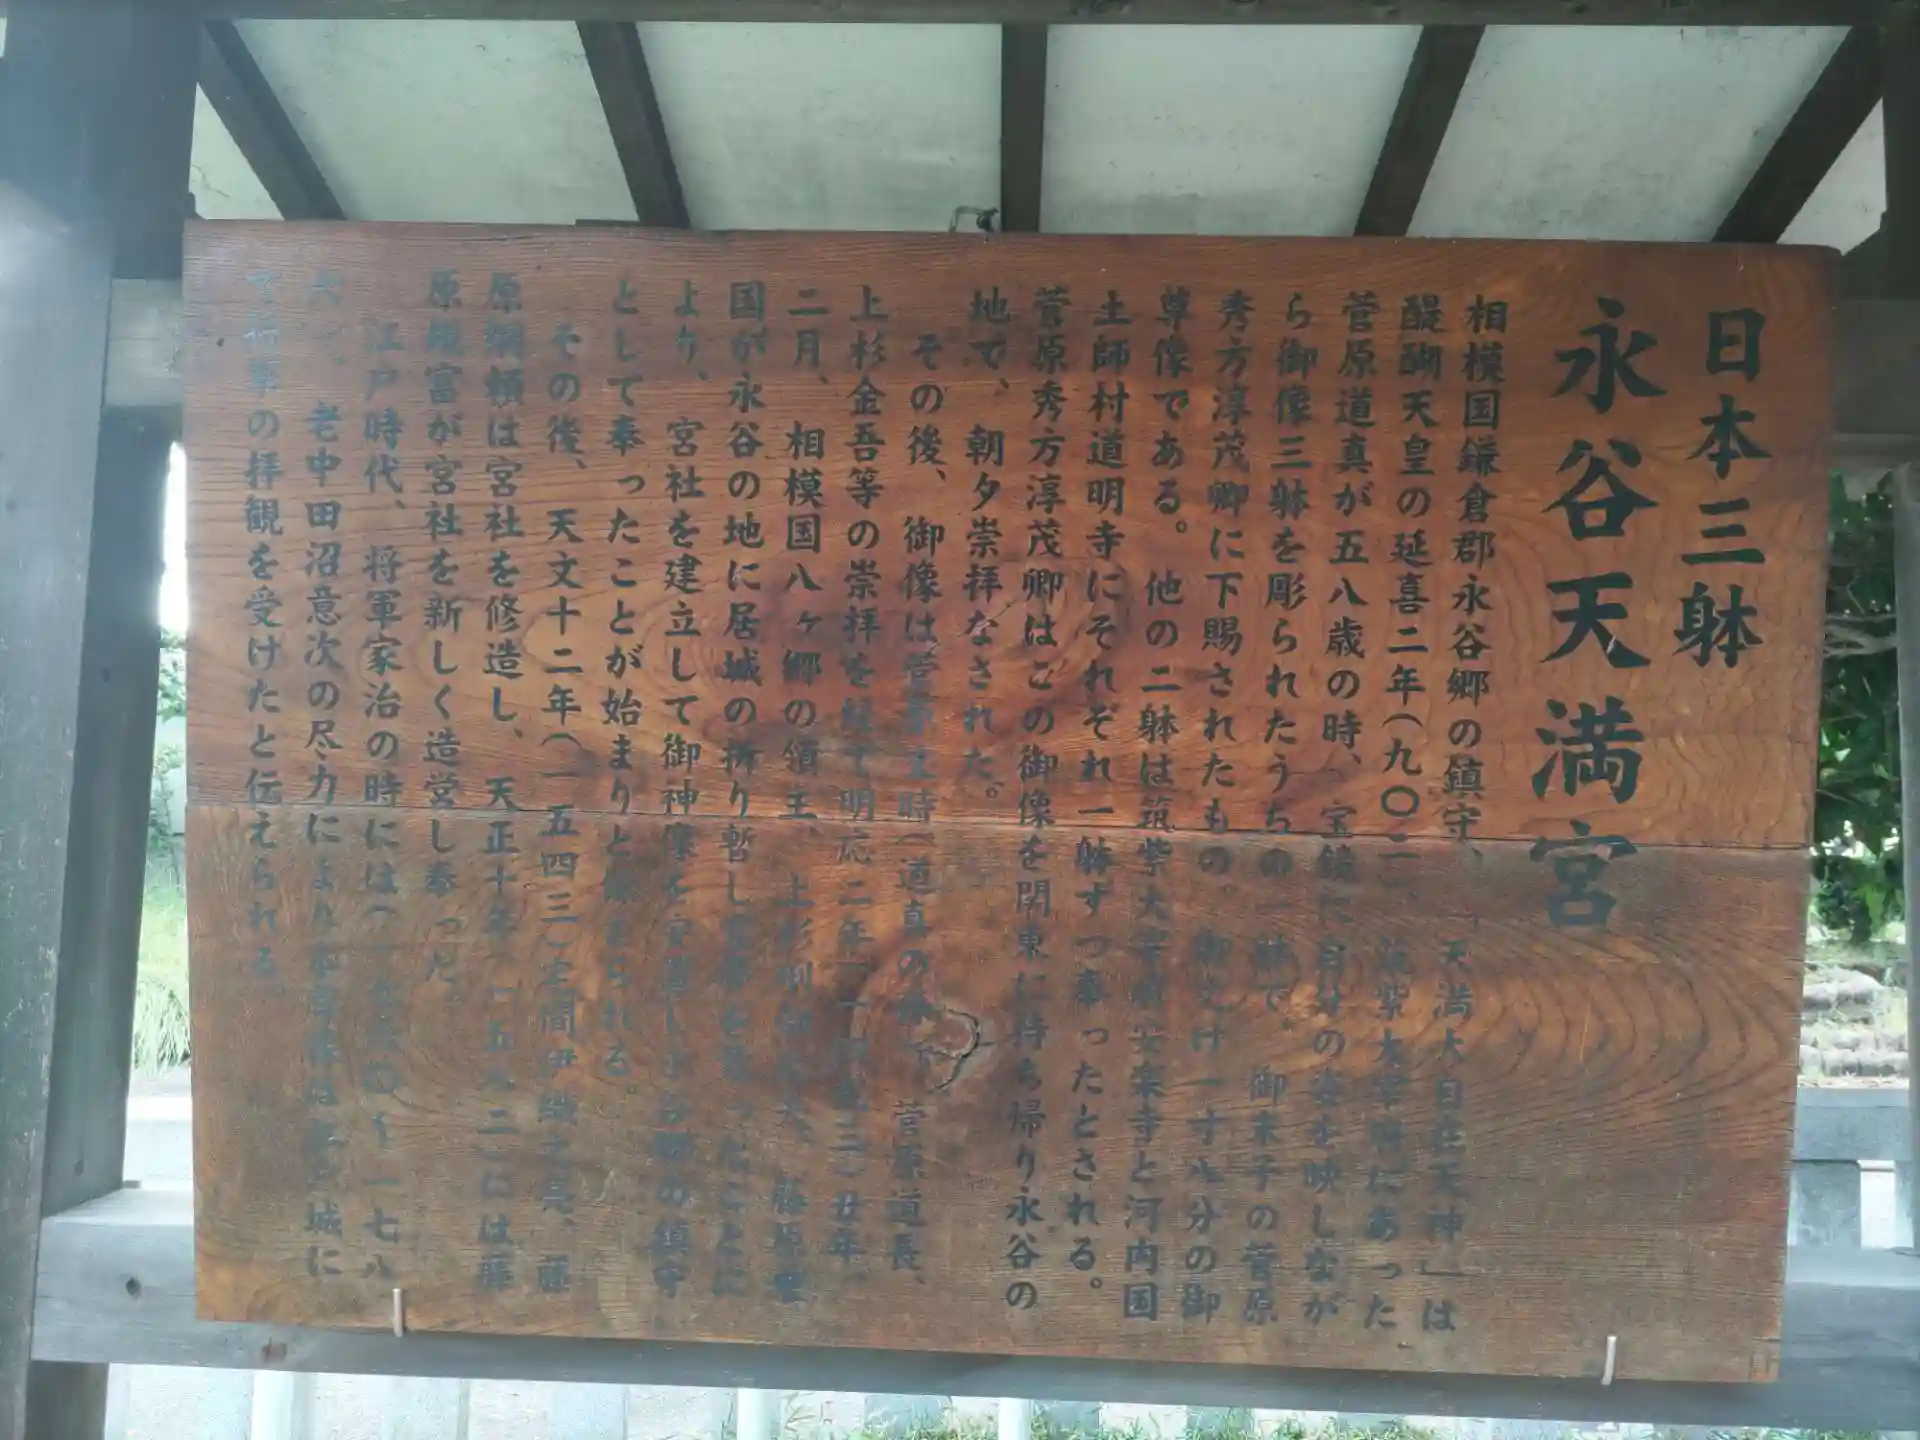 日本三躰
永谷天満宮
相模国鎌倉郡永谷郷の鎮守、「天満大自在天神」は
醍醐天皇の延喜二年(九〇二)、筑紫太宰府にあった
菅原道真が五八歳の時、宝鏡に自分の姿を映しなが
ら御像三躰を彫られたうちの一躰で、御末子の菅原
秀方淳茂卿に下賜されたもの。御丈け一寸八分の御
尊像である。他の二躰は筑紫太宰府安楽寺と河内国
土師村道明寺にそれぞれ一躰ずつ奉ったとされる。
菅原秀方淳茂卿はこの御像を関東に持ち帰り永谷の
地で、朝夕崇拝なされた。
その後、御像は菅原文時(道真の孫)、菅原道長、
上杉金吾等の崇拝を経て明応二年(一四九三)丑年
二月、相模国八ヶ郷の領主、上杉刑部大、藤原
国が永谷の地に居城の折り暫し
より、宮社を建立して御神像を安置し永谷郷の鎮守
として奉ったことが始まりと伝えられる。
その後、天文十二年(一五四三)宅間伊織之亮、藤
原綱頼は宮社を修造し、天正十年(一五八二)には藤
原規富が宮社を新しく造営し奉った。
江戸時代、将軍家治の時には(一七六〇〜一七八
六)、老中田沼意次の尽力により御尊像は江戸城に
の拝観を受けたと伝えられる。